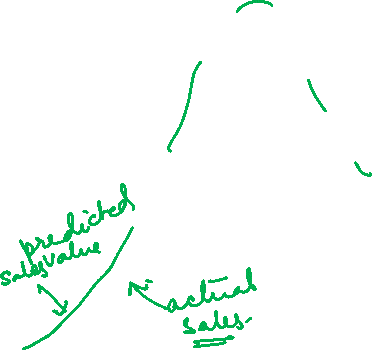 predicted
sales value
actual
sales.